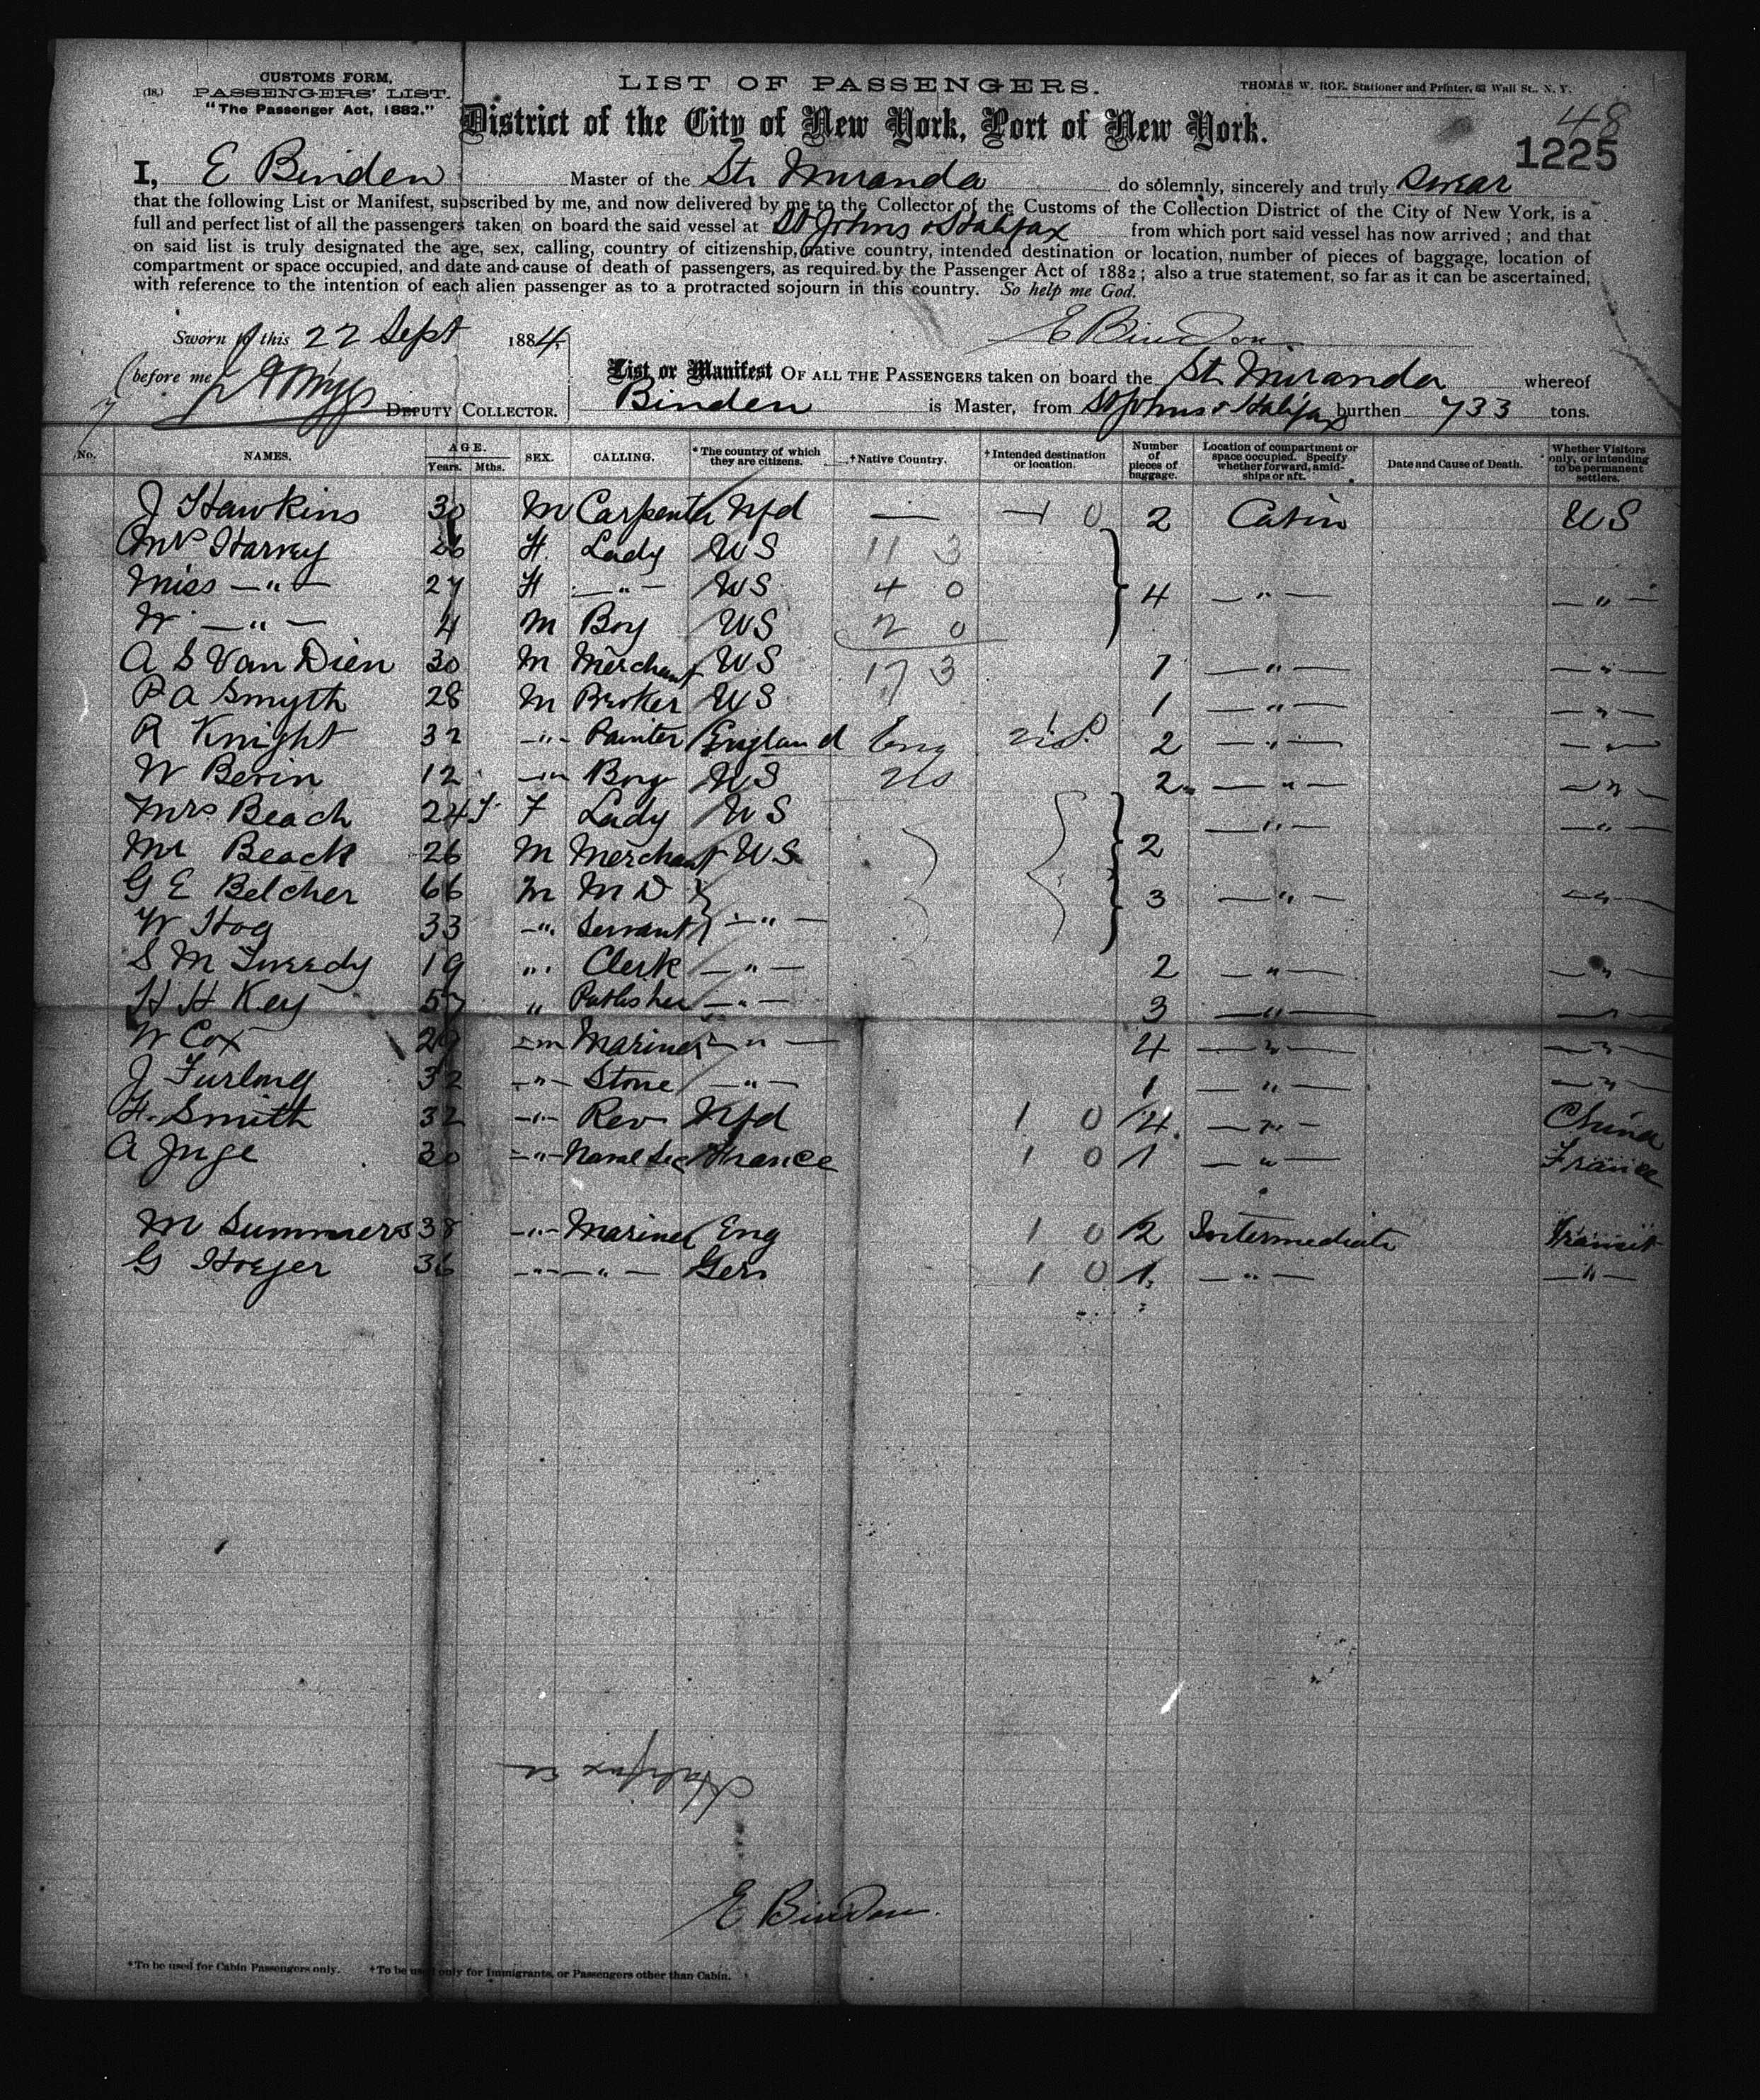 (18.) CUSTOMS FORM, PASSENGERS' LIST. "The Passenger Act, 1882."
LIST OF PASSENGERS.
THOMAS W. ROE, Stationer and Printer, 63 Wall St., N. Y.
District of the City of New York, Port of New York.
48
1225
I, E Binden Master of the Str Miranda do solemnly, sincerely and truly swear
that the following List or Manifest, subscribed by me, and now delivered by me to the Collector of the Customs of the Collection District of the City of New York, is a
full and perfect list of all the passengers taken on board the said vessel at St Johns & Halifax from which port said vessel has now arrived; and that
on said list is truly designated the age, sex, calling, country of citizenship, native country, intended destination or location, number of pieces of baggage, location of
compartment or space occupied, and date and cause of death of passengers, as required by the Passenger Act of 1882; also a true statement, so far as it can be ascertained,
with reference to the intention of each alien passenger as to a protracted sojourn in this country. So help me God.
Sworn to this 22 Sept 1884, E Bindon
before me DEPUTY COLLECTOR.
List or Manifest OF ALL THE PASSENGERS taken on board the Str Miranda whereof
Binden is Master, from St Johns & Halifax burthen 733 tons.
No. NAMES. AGE. Years. Mths. SEX. CALLING. *The country of which they are citizens. †Native Country. †Intended destination or location. Number of pieces of baggage. Location of compartment or space occupied. Specify whether forward, amidships or aft. Date and Cause of Death. Whether Visitors only, or intending to be permanent settlers.
J Hawkins 30 M Carpenter Nfd — 1 0 2 Cabin US
Mrs Harvey F. Lady US 11 3
Miss —"— 27 F —"— US 4 0 4 —"— —"—
W —"— 4 M Boy US 2 0
A S Van Dien 30 M Merchant US 17 3 1 —"— —"—
P A Smyth 28 M Broker US 1 —"— —"—
R Knight 32 —"— Painter England Eng 2 —"— —"—
W Bevin 12 —"— Boy US US 2 —"— —"—
Mrs Beach 24 F Lady US —"— —"—
Mr Beach 26 M Merchant US 2
G E Belcher 66 M M D 3 —"— —"—
W Hog 33 —"— Servant —"—
S M Tweedy 19 " Clerk —"— 2 —"— —"—
H H Key 57 " Publisher —"— 3 —"— —"—
W Cox 29 —"— Mariner —"— 4 —"— —"—
J Furlong 32 —"— Stone —"— 1 —"— —"—
F. Smith 32 —"— Rev Nfd 1 0 4 —"— China
A Juge 30 —"— Naval Sec France 1 0 1 —"— France
M Summers 38 —"— Mariner Eng 1 0 2 Intermediate Transit
G Hoyer 36 —"— —"— Ger 1 0 1 —"— —"—
Halifax
E Bindon
*To be used for Cabin Passengers only. †To be used only for Immigrants, or Passengers other than Cabin.